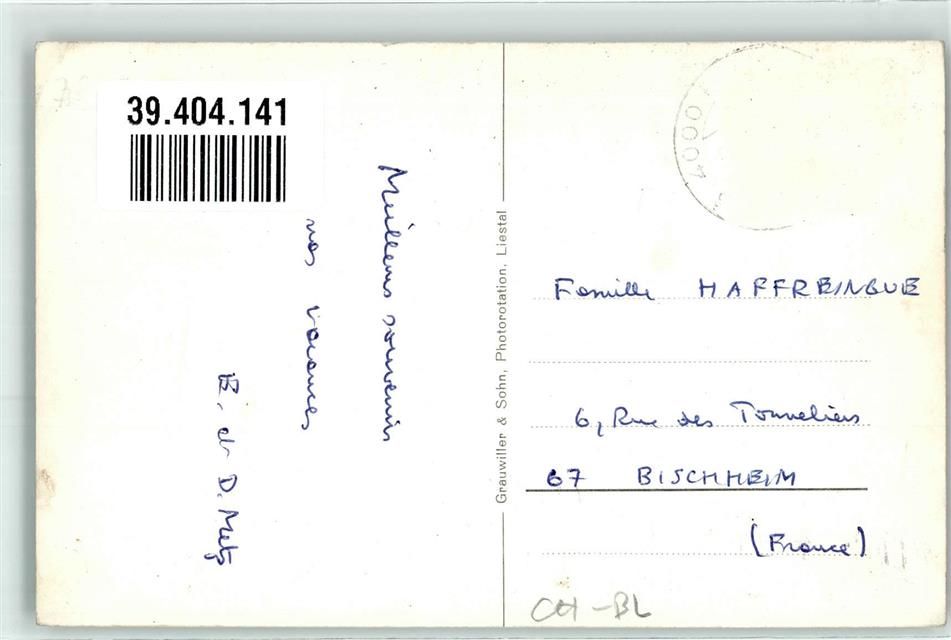 39.404.141
Meilleurs souvenirs
nos vacances
E. et D. Metz
Grauwiller & Sohn, Photorotation, Liestal
4000
Famille HAFFREINGUE
6, Rue des Tonneliers
67 BISCHHEIM
(France)
CH-BL